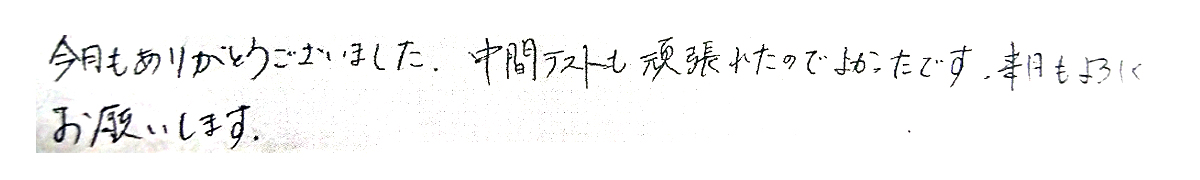 今月もありがとうございました. 中間テストも頑張れたのでよかったです. 来月もよろしく
お願いします.